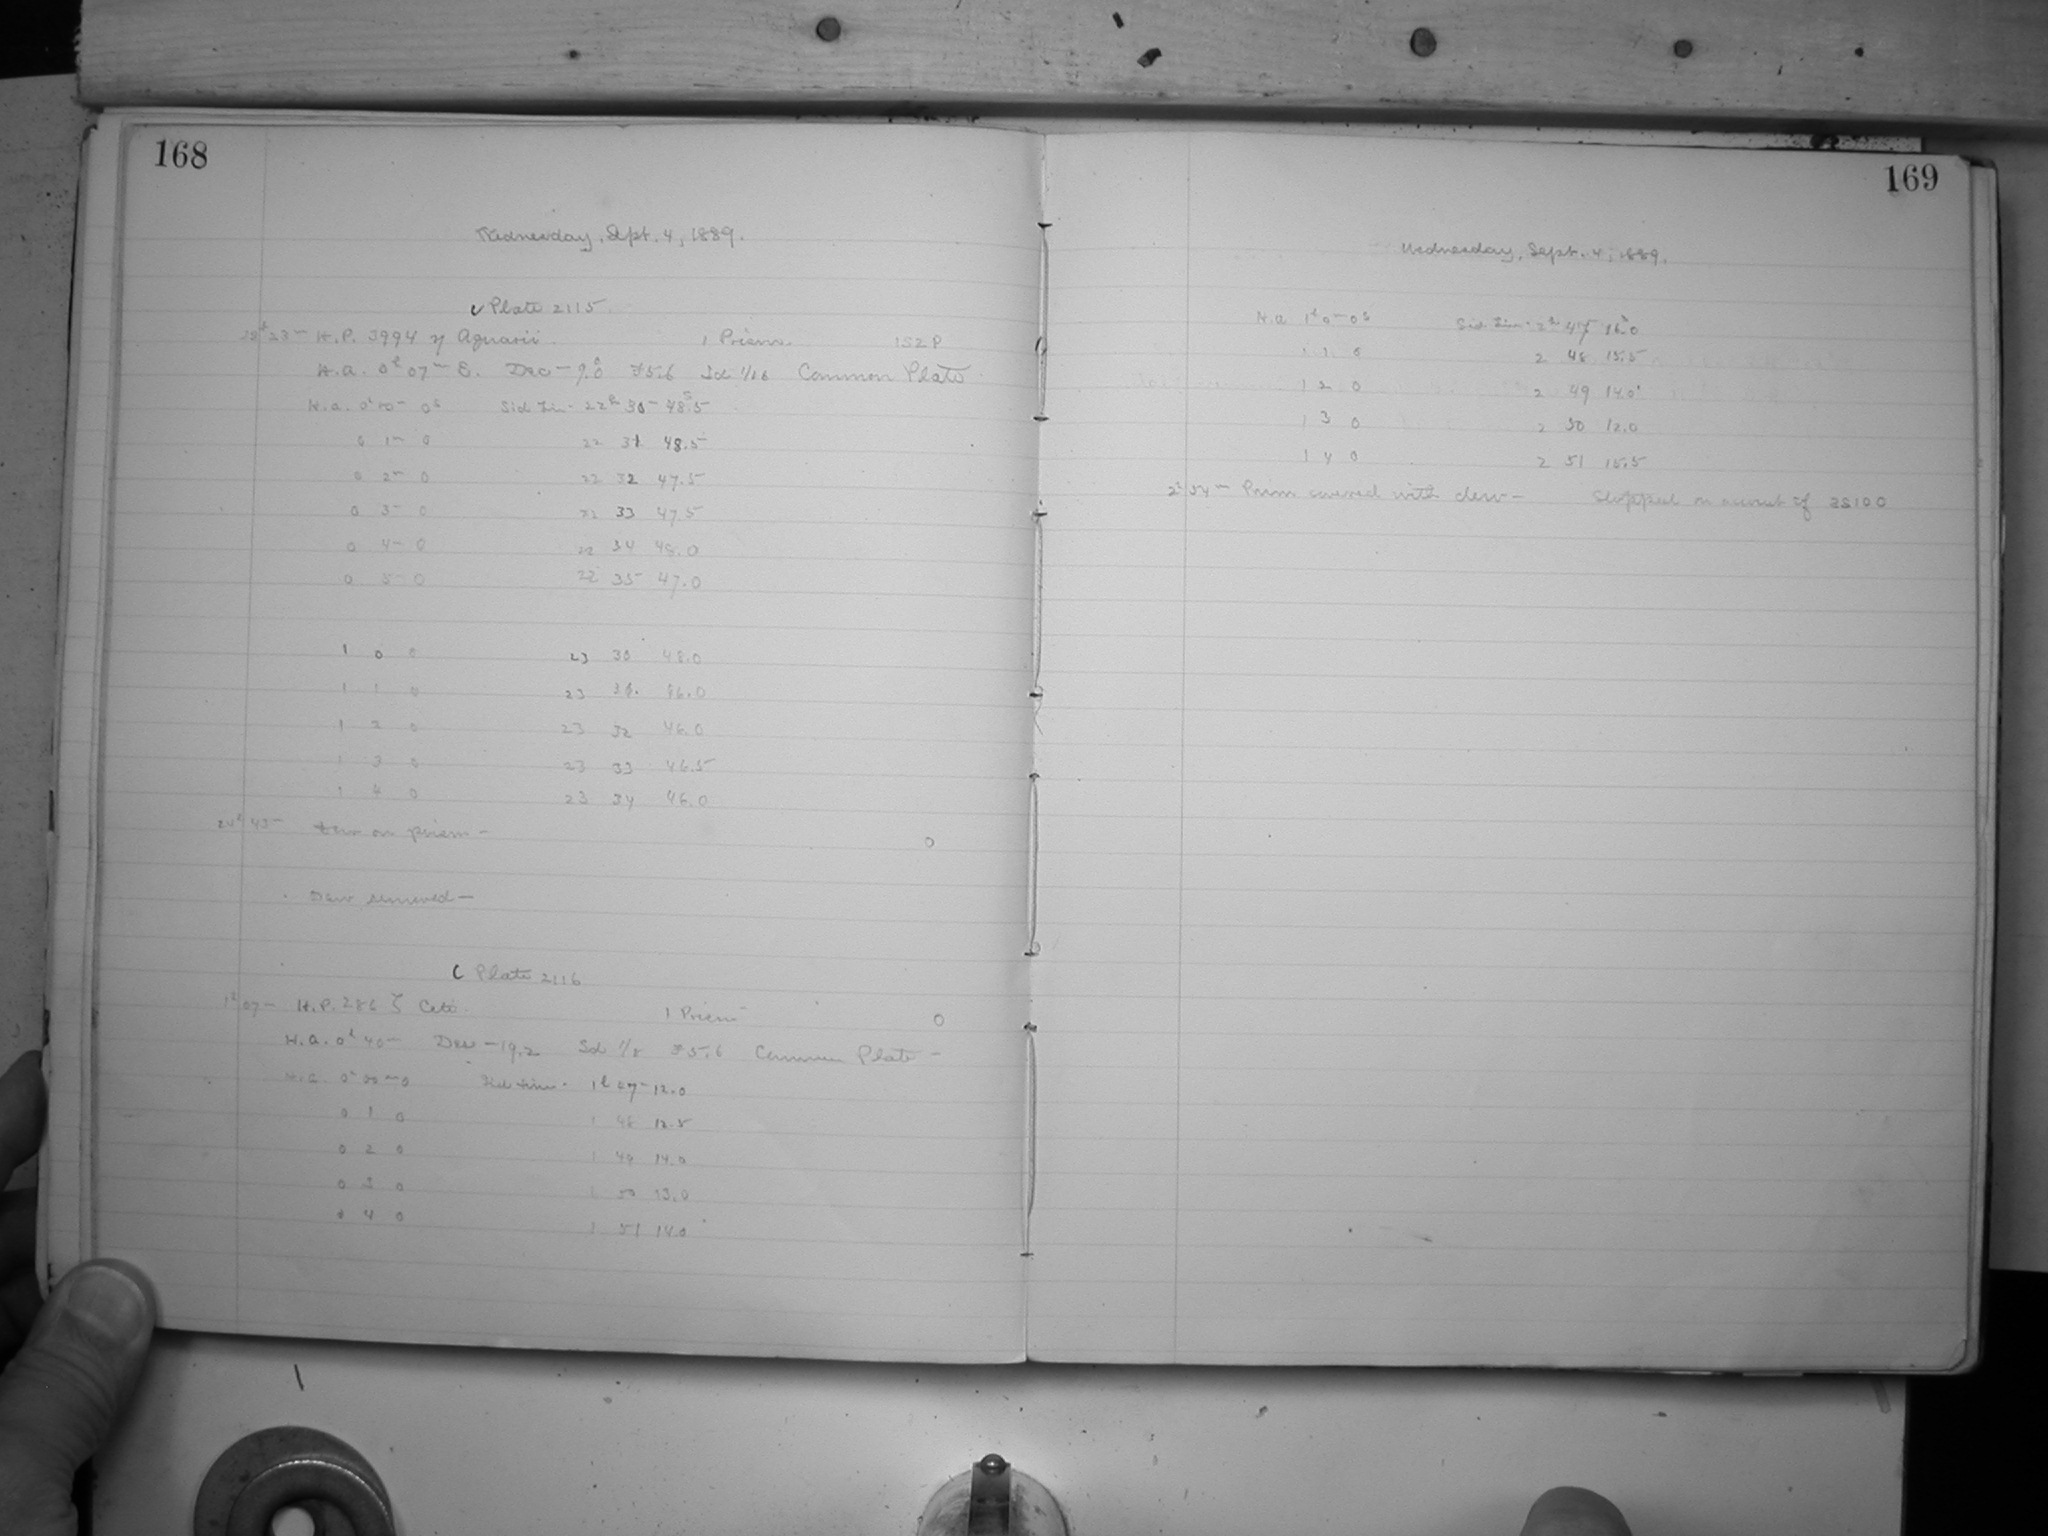 168
Wednesday, Sept. 4, 1889.
C Plate 2115
23m H.P. 3994 η Aquarii 1 Prism 1S2P
H.a. 0h 07m E. Dec - F5.6 Sd 1/16 Common Plate
H.a. 0h 00m 0s Sid Tim. 22h 30m 48s.5
0 1m 0 22 31 48.5
0 2m 0 22 32 47.5
0 3m 0 22 33 47.5
0 4m 0 22 34 48.0
0 5 0 22 35 47.0
1 0 0 23 30 48.0
1 1 0 23 31. 46.0
1 2 0 23 32 46.0
1 3 0 23 33 46.5
1 4 0 23 34 46.0
24h 43m on prism - 0
Dew removed -
C Plate 2116
1h 07m H.P. 286 ζ Ceti. 1 Prism 0
H.a. 0h 40m Dec -19.2 Sd 1/8 F5.6 Common Plate -
H.a. 0h 00m 0 Sid time. 1h 47m 12.0
0 1 0 1 48 12.5
0 2 0 1 49 14.0
0 3 0 1 50 13.0
0 4 0 1 51 14.0
169
Wednesday, Sept. 4, 1889.
H.a 1h 0m 0s Sid. Tim. 2h 47 16s.0
1 1 0 2 48 15.5
1 2 0 2 49 14.0
1 3 0 2 50 12.0
1 4 0 2 51 15.5
2h 54m Prism covered with dew - Stopped on account of 2S10C